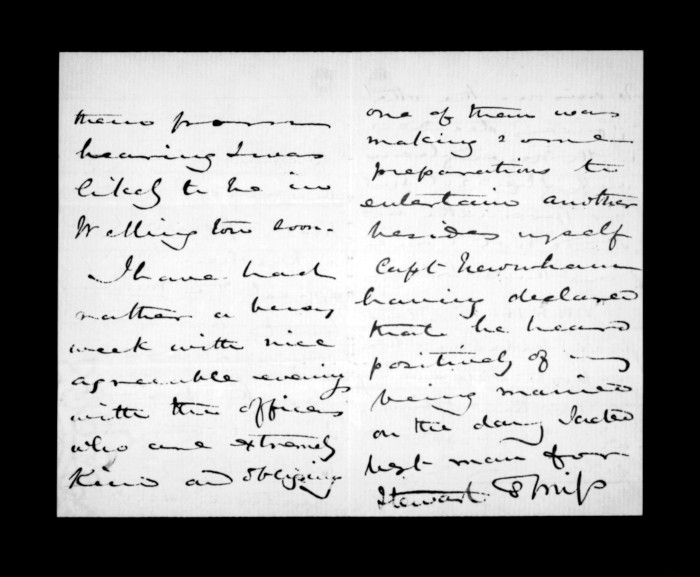 them from
hearing I was
likely to be in
Wellington soon.
I have had
rather a busy
week with nice
agreeable evening
with the officers
who are extremely
kind and obliging
one of them was
making some
preparations to
entertain another
besides myself
Capt Newnham
having declared
that he heard
positively of my
being married
on the day I acted
best man for
Stewart